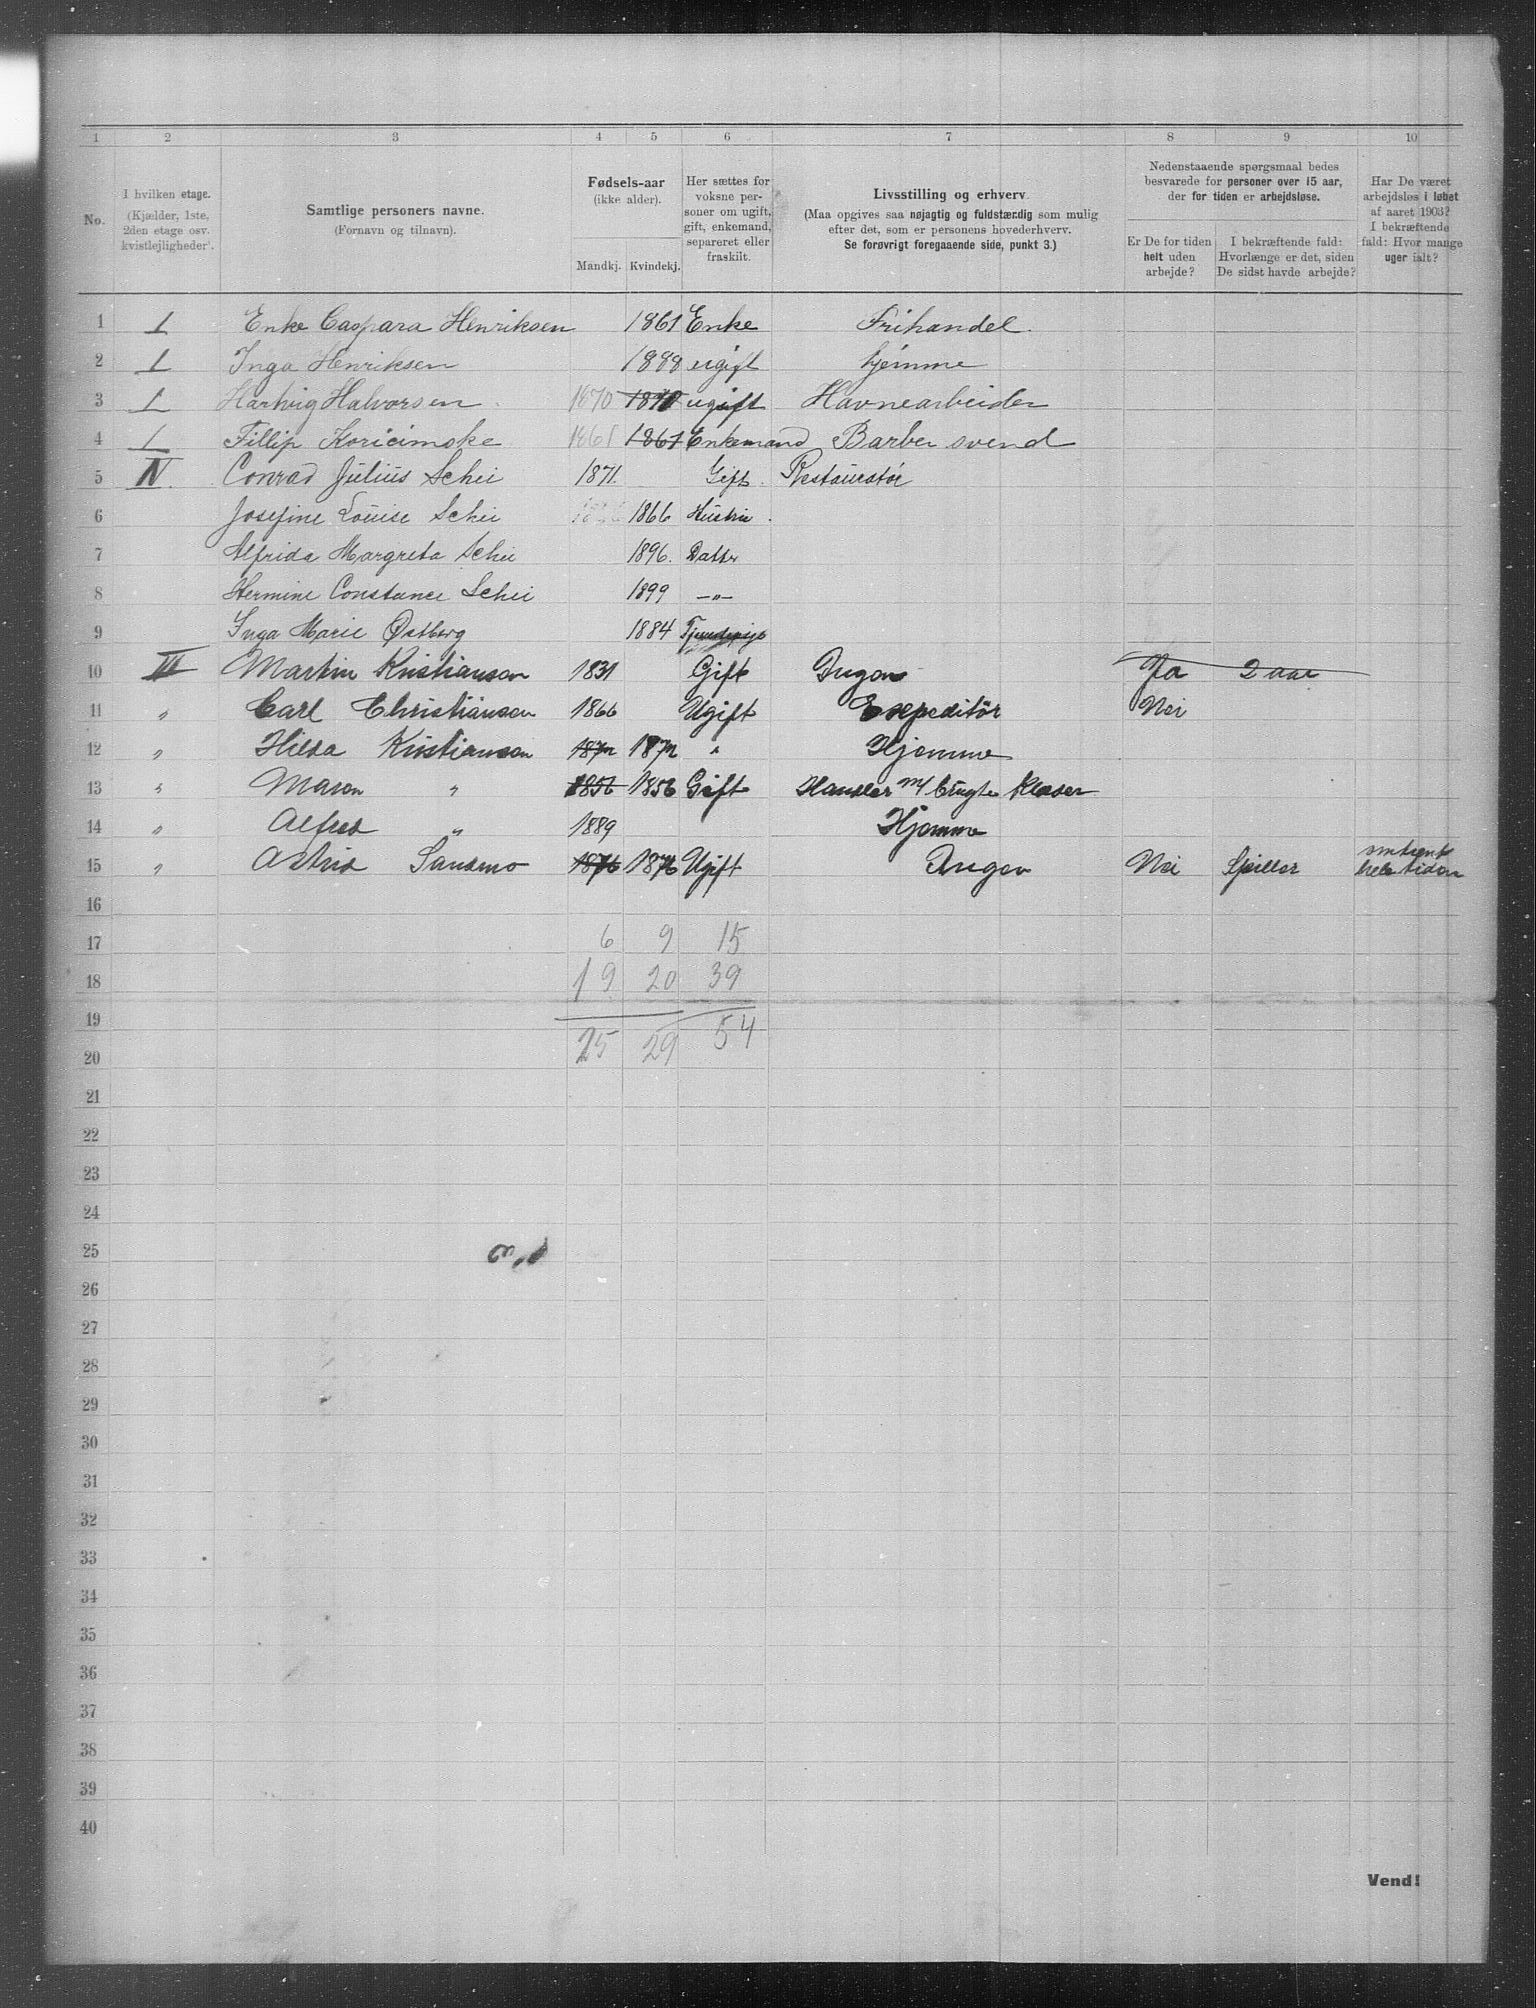 1 2 3 4 5 6 7 8 9 10
No.
I hvilken etage.
(Kjælder, 1ste,
2den etage osv.
kvistlejligheder).
Samtlige personers navne.
(Fornavn og tilnavn).
Fødsels-aar
(ikke alder).
Mandkj. Kvindekj.
Her sættes for
voksne per-
soner om ugift,
gift, enkemand,
separeret eller
fraskilt.
Livsstilling og erhverv
(Maa opgives saa nøjagtig og fuldstændig som mulig
efter det, som er personens hovederhverv.
Se forøvrigt foregaaende side, punkt 3.)
Nedenstaaende spørgsmaal bedes
besvarede for personer over 15 aar,
der for tiden er arbejdsløse.
Er De for tiden
helt uden
arbejde?
I bekræftende fald:
Hvorlænge er det, siden
De sidst havde arbejde?
Har De været
arbejdsløs i løbet
af aaret 1903?
I bekræftende
fald: Hvor mange
uger ialt?
1 1 Enke Caspara Henriksen 1861 Enke Frihandel.
2 1 Inga Henriksen 1888 ugift hjemme
3 1 Hartvig Halvorsen 1870 1870 ugift Havnearbeider
4 1 Fillip Koricimske 1861 1861 Enkemand Barber svend
5 IV. Conrad Julius Schii 1871. Gift. Restauratør
6 Josefine Louise Schii 1866 Hustru.
7 Alfrida Margreta Schii 1896. Datter
8 Hermine Constance Schii 1899 —"—
9 Inga Marie Østberg 1884 Tjenestepige
10 III Martin Kristianson 1831 Gift Ingen Ja 2 aar
11 " Carl Christiansen 1866 Ugift Expeditör Nei
12 " Hilda Kristianson 1872 1872 " Hjemme
13 " Maren " 1856 1856 Gift Handler m/ brugte Klæder
14 " Alfred " 1889 Hjemme
15 " Astrid Sandmo 1876 1876 Ugift Ingen Nei Spiller omtrent
hele tiden
16
17 6 9 15
18 19 20 39
19
20 25 29 54
21
22
23
24
25
26
27
28
29
30
31
32
33
34
35
36
37
38
39
40
Vend!